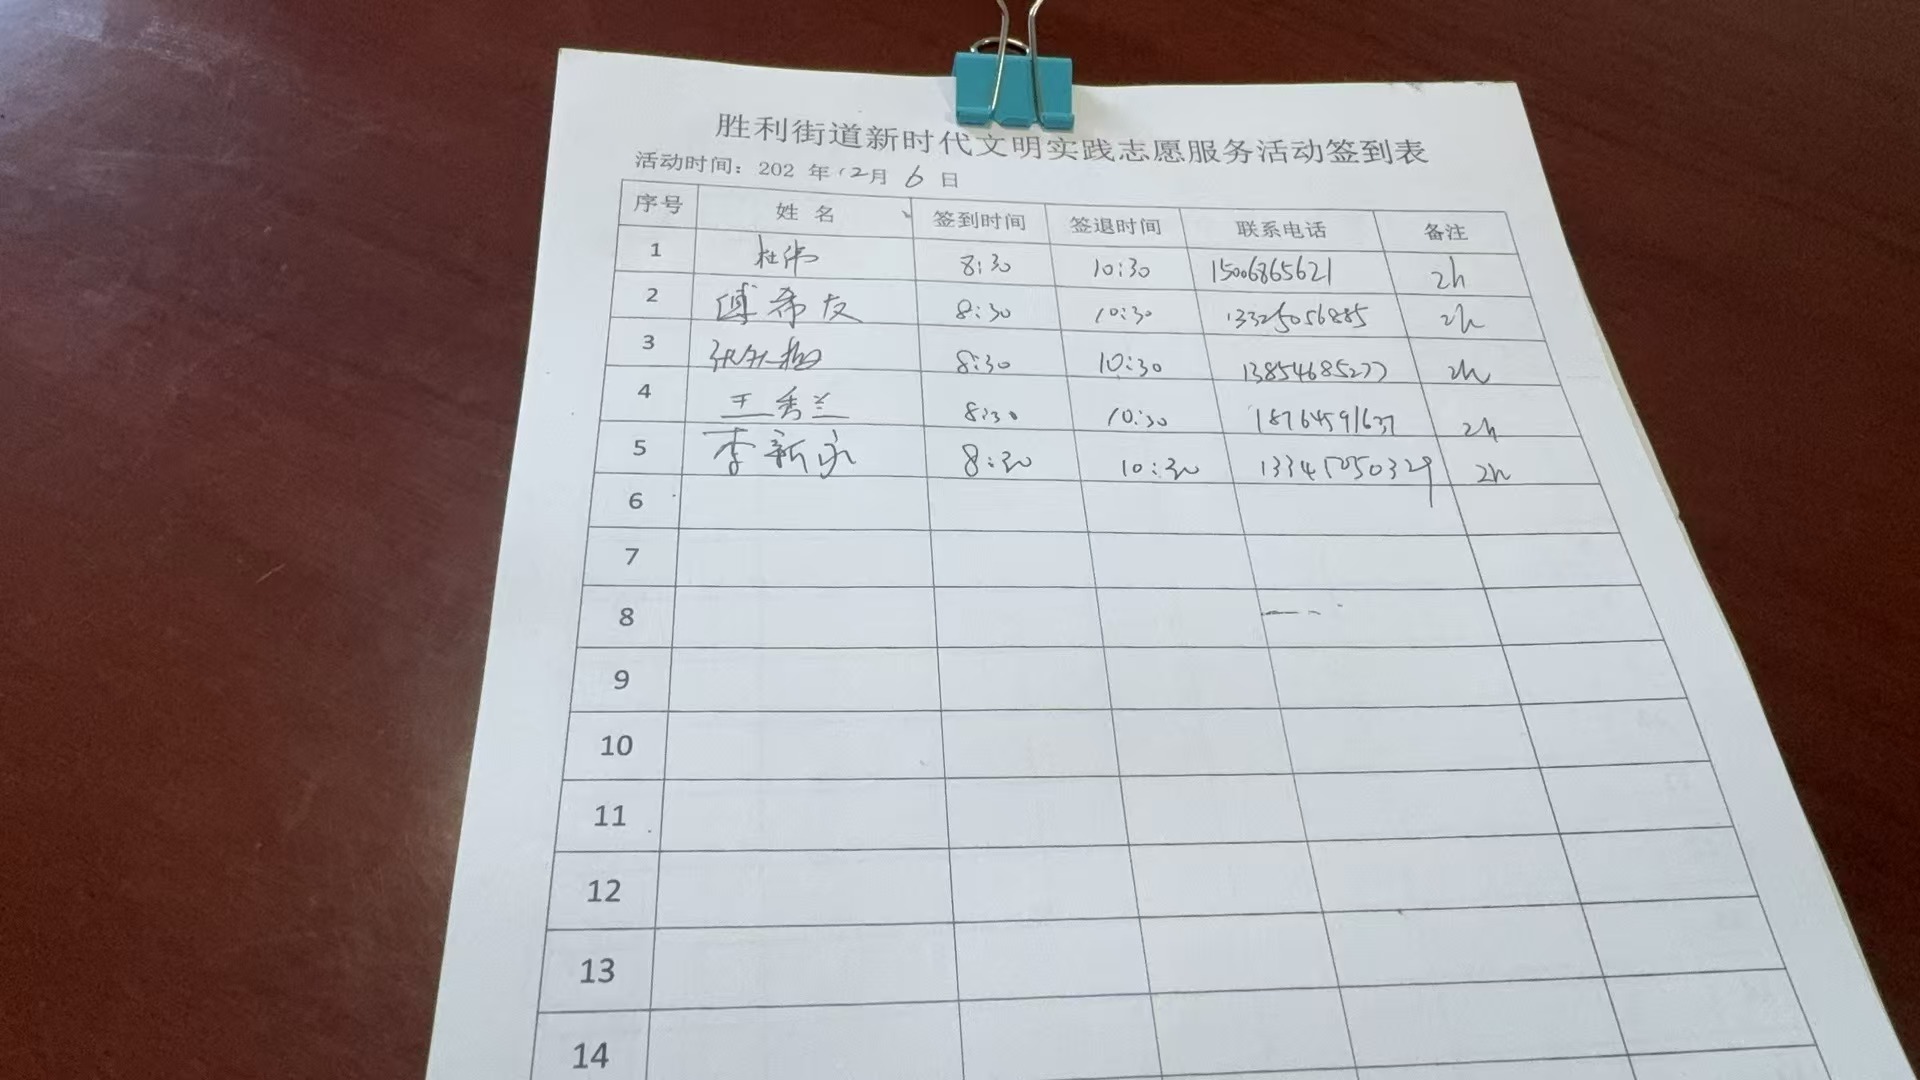 胜利街道新时代文明实践志愿服务活动签到表
活动时间：202 年 12月 6 日
序号 姓名 签到时间 签退时间 联系电话 备注
1 杜伟 8:30 10:30 15006865621 2h
2 傅希友 8:30 10:30 13325056885 2h
3 8:30 10:30 13854685277 2h
4 王秀兰 8:30 10:30 18764591637 2h
5 李新永 8:30 10:30 13345050329 2h
6
7
8
9
10
11
12
13
14